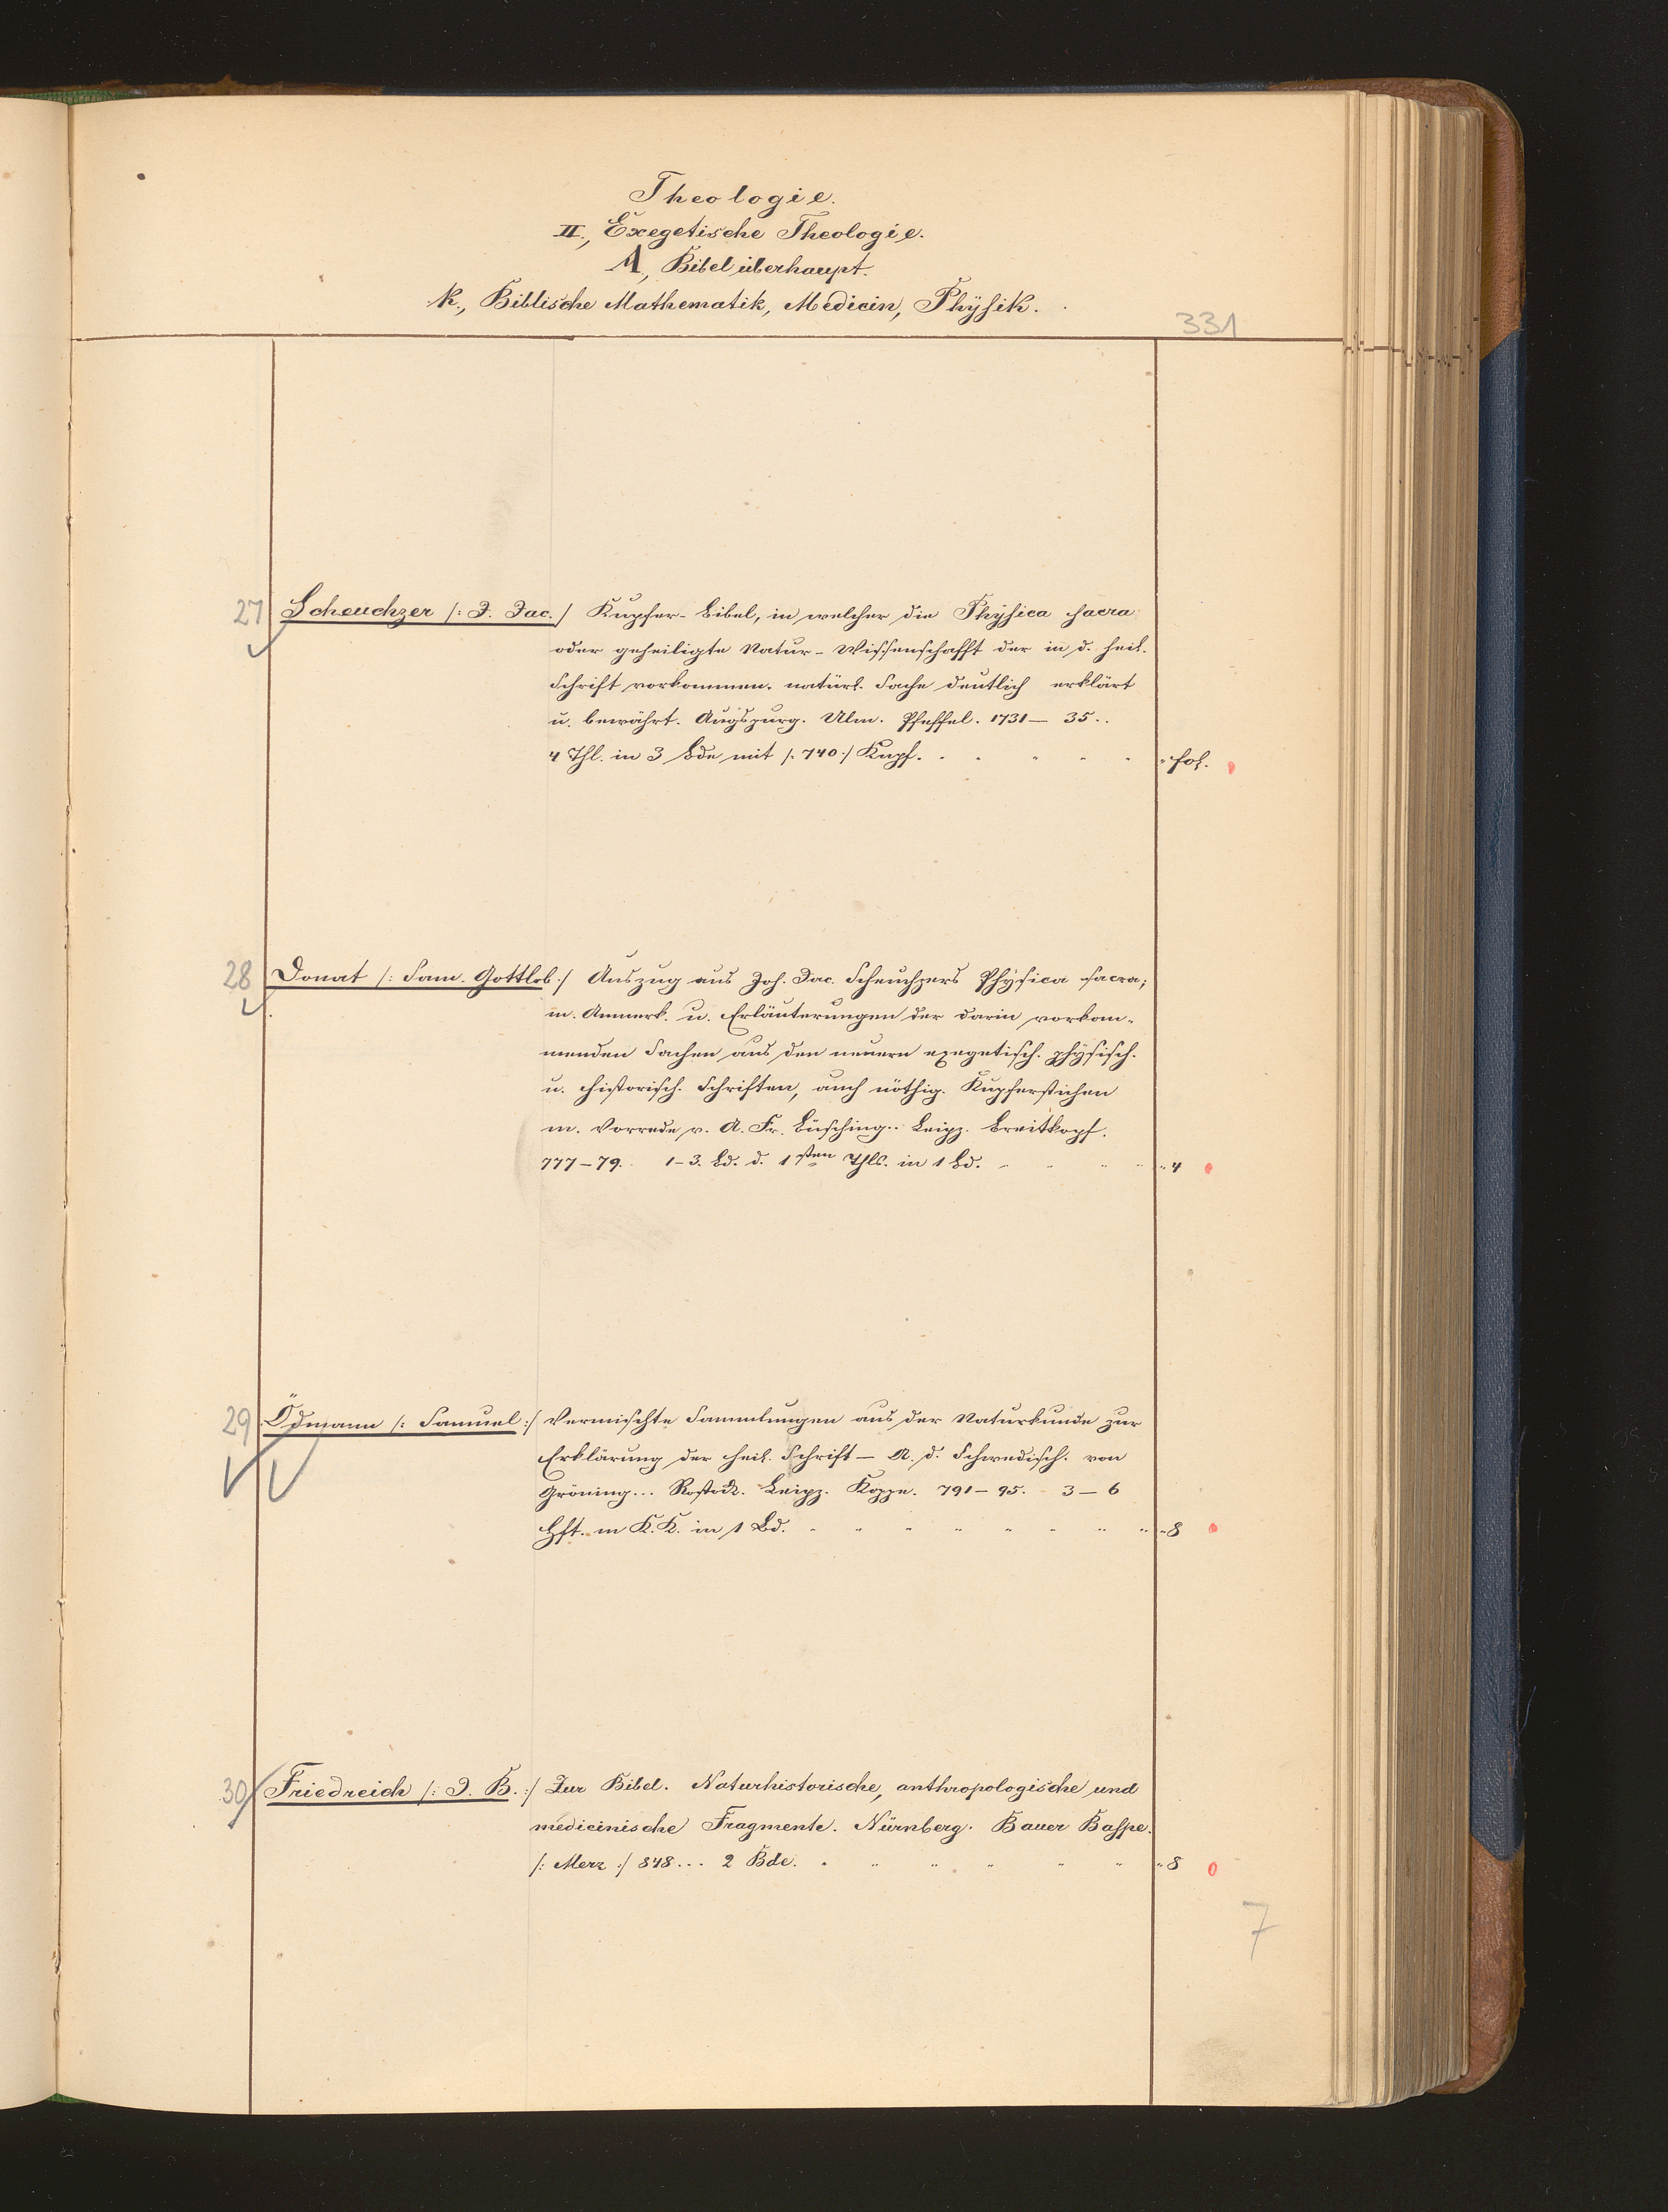 Theologie.
II., Exegetische Theologie.
A, Bibel überhaupt.
k., Biblische Mathematik, Medicin, Physik.
331
27 Scheuchzer /: J. Jac. / Kupfer-bibel, in welcher die Physica sacra
oder geheiligte Natur-Wissenschafft der in d. heil.
Schrift vorkommen. natürl. Sache deutlich erklärt
u. bewährt. Augspurg. Ulm. Pfeffel. 1731 — 35..
4 Thl. in 3 Bde mit /: 740 :/ Kupf. fol.
28 Donat /: Sam. Gottlob :/ Auszug aus Joh. Jac. Scheuchzers Physica sacra;
m. Anmerk. u. Erläuterungen der darin vorkom-
menden Sachen aus den neuern exegetisch. physisch.
u. historisch. Schriften, auch nöthig. Kupferstichen
m. Vorrede v. A. Fr. Büsching.. Leipz. Breitkopf.
777–79. 1–3. Bd. d. 1sten Thls. in 1 Bd. 4
29 Ödmann /: Samuel :/ Vermischte Sammlungen aus der Naturkunde zur
Erklärung der heil. Schrift — A. d. Schwedisch. von
Gröning... Rostock. Leipz. Koppe. 791–95. 3–6
Hft. m K.K. in 1 Bd. 8
30 Friedreich /: J. B. :/ Zur Bibel. Naturhistorische, anthropologische und
medicinische Fragmente. Nürnberg. Bauer Raspe.
/: Merz :/ 848... 2 Bde. 8
7